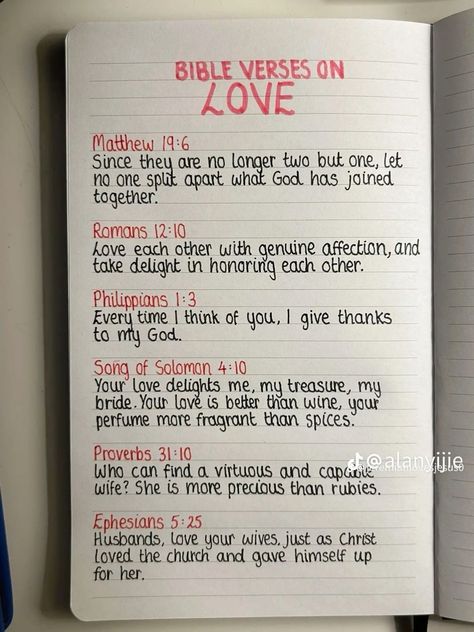 BIBLE VERSES ON
LOVE
Matthew 19:6
Since they are no longer two but one, let
no one split apart what God has joined
together.
Romans 12:10
Love each other with genuine affection, and
take delight in honoring each other.
Philippians 1:3
Every time I think of you, I give thanks
to my God.
Song of Solomon 4:10
Your love delights me, my treasure, my
bride. Your love is better than wine, your
perfume more fragrant than spices.
Proverbs 31:10
@alanyijie
Who can find a virtuous and capable
wife? She is more precious than rubies.
Ephesians 5:25
Husbands, love your wives, just as Christ
loved the church and gave himself up
for her.